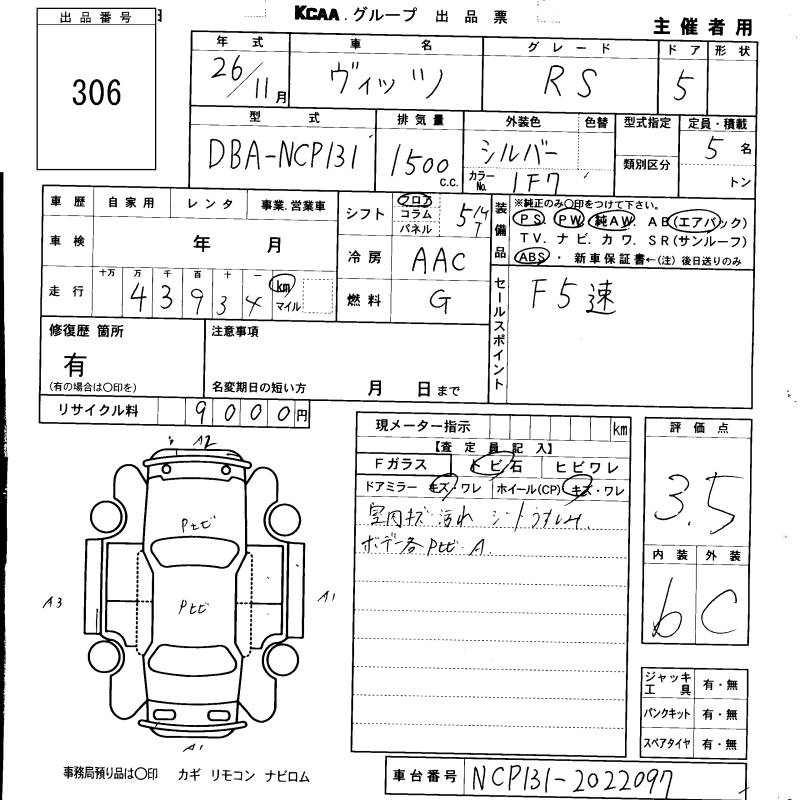 KCAA.グループ 出品票
主催者用
出品番号
306
年式 車名 グレード ドア 形状
26/11月 ヴィッツ RS 5
型式 排気量 外装色 色替 型式指定 定員・積載
DBA-NCP131 1500c.c. シルバー 5名
カラーNo. 1F7 類別区分 トン
車歴 自家用 レンタ 事業.営業車
車検 年 月
走行 十万 万 千 百 十 一
43934 km マイル
シフト フロア コラム パネル 5MT
冷房 AAC
燃料 G
装備品
※純正のみ○印をつけて下さい。
PS PW 純AW. AB(エアバック)
TV. ナビ. カワ. SR(サンルーフ)
ABS・ 新車保証書←(注)後日送りのみ
セールスポイント
F5速
修復歴 箇所
有
(有の場合は○印を)
注意事項
名変期日の短い方 月 日まで
リサイクル料 9000円
現メーター指示 km
【査定員記入】
Fガラス トビ石 ヒビワレ
ドアミラー キズ・ワレ ホイール(CP) キズ・ワレ
室内キズ汚れ シートうすしみ.
ボデー各Pセビ A.
評価点
3.5
内装 外装
b C
A2
Pセビ
A3
Pセビ
A1
A1
ジャッキ工具 有・無
パンクキット 有・無
スペアタイヤ 有・無
事務局預り品は○印 カギ リモコン ナビロム
車台番号 NCP131-2022097